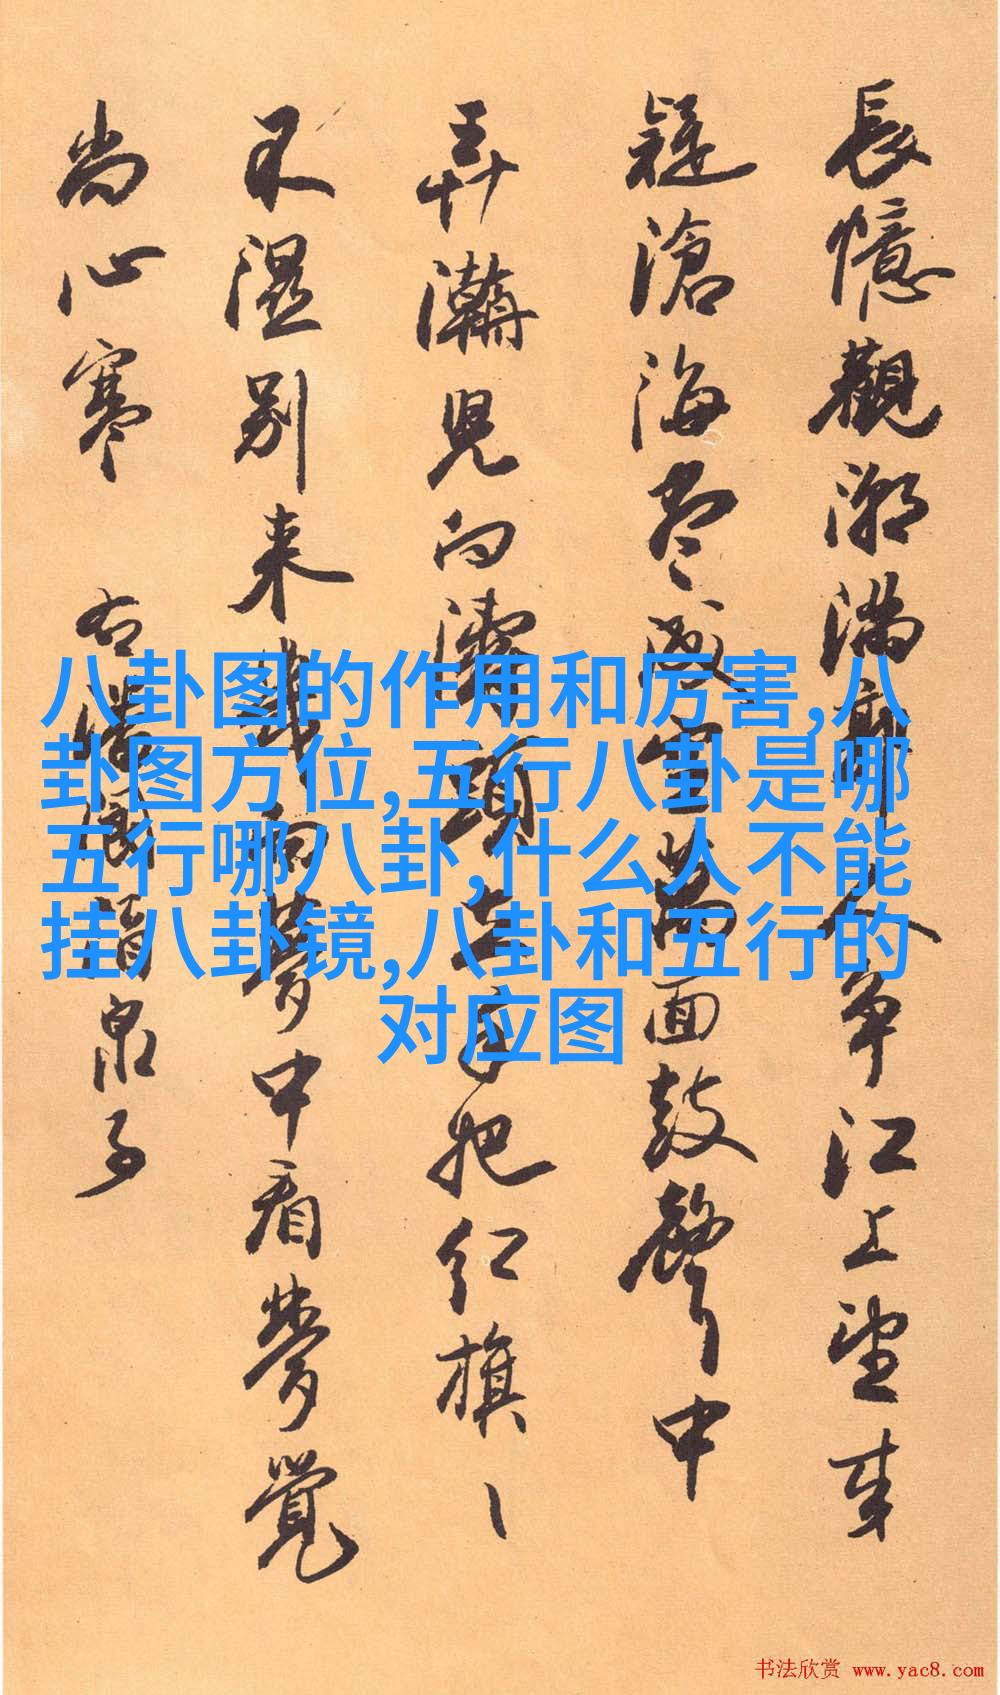 長憶觀潮滿郭人争江上望来
疑滄海尽成空萬面鼓聲中
弄潮兒向濤頭立手把红旗ヽ
不湿别来幾向夢中看夢覺
尚心寒 右潘阆酒泉子
八卦图的作用和厉害,八
卦图方位,五行八卦是哪
五行哪八卦,什么人不能
挂八卦镜,八卦和五行的
对应图
书法欣赏 www.yac8.com